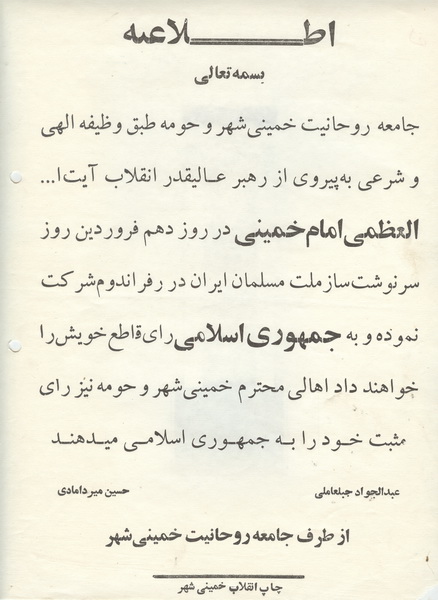 اطلاعیه
بسمه تعالی
جامعه روحانیت خمینی شهر و حومه طبق وظیفه الهی
و شرعی به پیروی از رهبر عالیقدر انقلاب آیت ا...
العظمی امام خمینی در روز دهم فروردین روز
سرنوشت ساز ملت مسلمان ایران در رفراندوم شرکت
نموده و به جمهوری اسلامی رای قاطع خویش را
خواهند داد اهالی محترم خمینی شهر و حومه نیز رای
مثبت خود را به جمهوری اسلامی میدهند
عبدالجواد جبلعاملی	حسین میردامادی
از طرف جامعه روحانیت خمینی شهر
چاپ انقلاب خمینی شهر